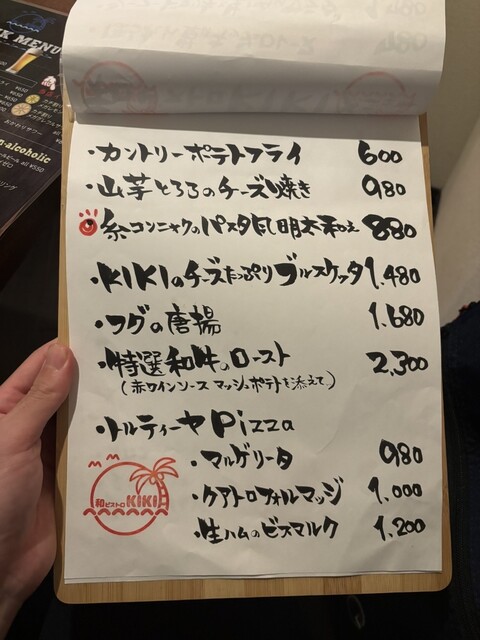 K MENU
n-alcoholic
・カントリーポテトフライ 600
・山芋とろろのチーズ焼き 980
糸コンニャクのパスタ風明太和え 880
・KIKIのチーズたっぷりブルスケッタ 1.480
・フグの唐揚 1.680
・特選和牛のロースト 2,300
（赤ワインソース マッシュポテトを添えて）
・トルティーヤPizza
・マルゲリータ 980
・クアトロフォルマッジ 1.000
・生ハムのビスマルク 1.200
和ビストロ KIKI